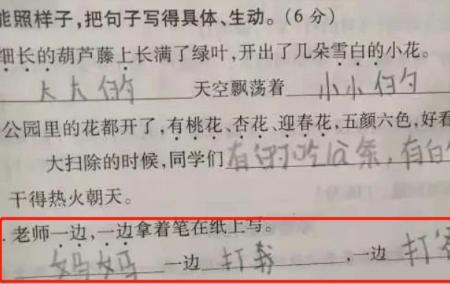 能照样子，把句子写得具体、生动。（6 分）
细长的葫芦藤上长满了绿叶，开出了几朵雪白的小花。
大大的 天空飘荡着 小小的
公园里的花都开了，有桃花、杏花、迎春花，五颜六色，好看
大扫除的时候，同学们 有的吃冰条，有的
干得热火朝天。
老师一边，一边拿着笔在纸上写。
妈妈 一边 打我 ，一边 打